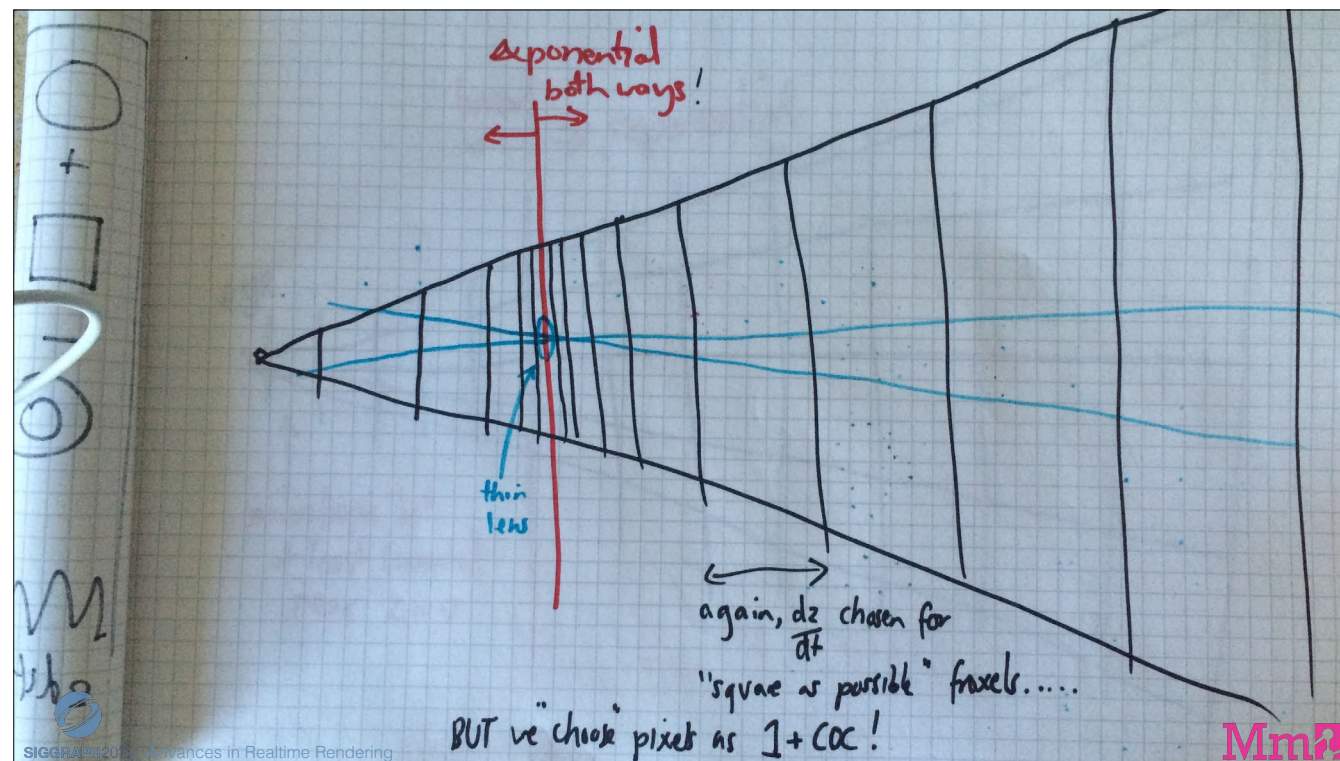 exponential
both ways!
thin
lens
again, dz/dt chosen for
"squae as possible" froxels.....
BUT we "choose" pixels as 1 + COC!
SIGGRAPH Advances in Realtime Rendering
Mm